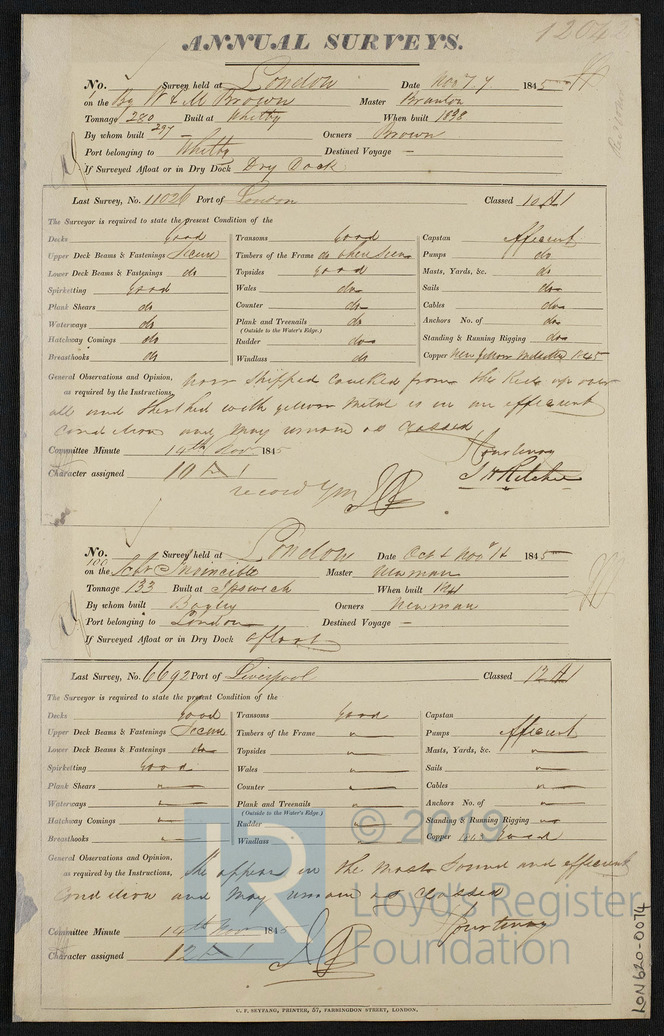 1204
ANNUAL SURVEYS.
No. Survey held at London Date Nov 7 1845
on the Bg W & M Brown Master
Tonnage 280 Built at Whitby When built 1838
297
By whom built — Owners Brown
Port belonging to Whitby Destined Voyage —
If Surveyed Afloat or in Dry Dock Dry Dock
Last Survey, No. 11026 Port of London Classed 10 A 1
The Surveyor is required to state the present Condition of the
Decks Good Transoms Good Capstan Efficient
Upper Deck Beams & Fastenings Secure Timbers of the Frame do where seen Pumps do
Lower Deck Beams & Fastenings do Topsides Good Masts, Yards, &c. do
Spirketting Good Wales do Sails do
Plank Shears do Counter do Cables do
Waterways do Plank and Treenails do Anchors No. of do
(Outside to the Water's Edge.)
Hatchway Comings do Rudder do Standing & Running Rigging do
Breasthooks do Windlass do Copper New Yellow Metal 1845
General Observations and Opinion, now stripped caulked from the Keel up over
as required by the Instructions,
all and sheathed with yellow metal is in an efficient
condition and may remain as classed
Committee Minute 14th Nov 1845 Courtenay
Character assigned 10 A 1 J H Ritchie
record YM
No. Survey held at London Date Oct & Novr 1845
100
on the Schr Invincible Master Newman
Tonnage 133 Built at Ipswich When built 1841
By whom built Bayley Owners Newman
Port belonging to London Destined Voyage —
If Surveyed Afloat or in Dry Dock afloat
Last Survey, No. 6692 Port of Liverpool Classed 12 A 1
The Surveyor is required to state the present Condition of the
Decks Good Transoms Good Capstan
Upper Deck Beams & Fastenings Secure Timbers of the Frame Pumps Efficient
Lower Deck Beams & Fastenings do Topsides Masts, Yards, &c.
Spirketting Good Wales Sails
Plank Shears Counter Cables
Waterways Plank and Treenails Anchors No. of
(Outside to the Water's Edge.)
Hatchway Comings Rudder Standing & Running Rigging
Breasthooks Windlass Copper 1843 Good
General Observations and Opinion, She appears in the most sound and efficient
as required by the Instructions,
condition and may remain as classed
Committee Minute 14th Nov 1845 Courtenay
Character assigned 12 A 1
C. F. SEYFANG, PRINTER, 57, FARRINGDON STREET, LONDON.
LON620-0074
LR
© 2019
Lloyd's Register
Foundation